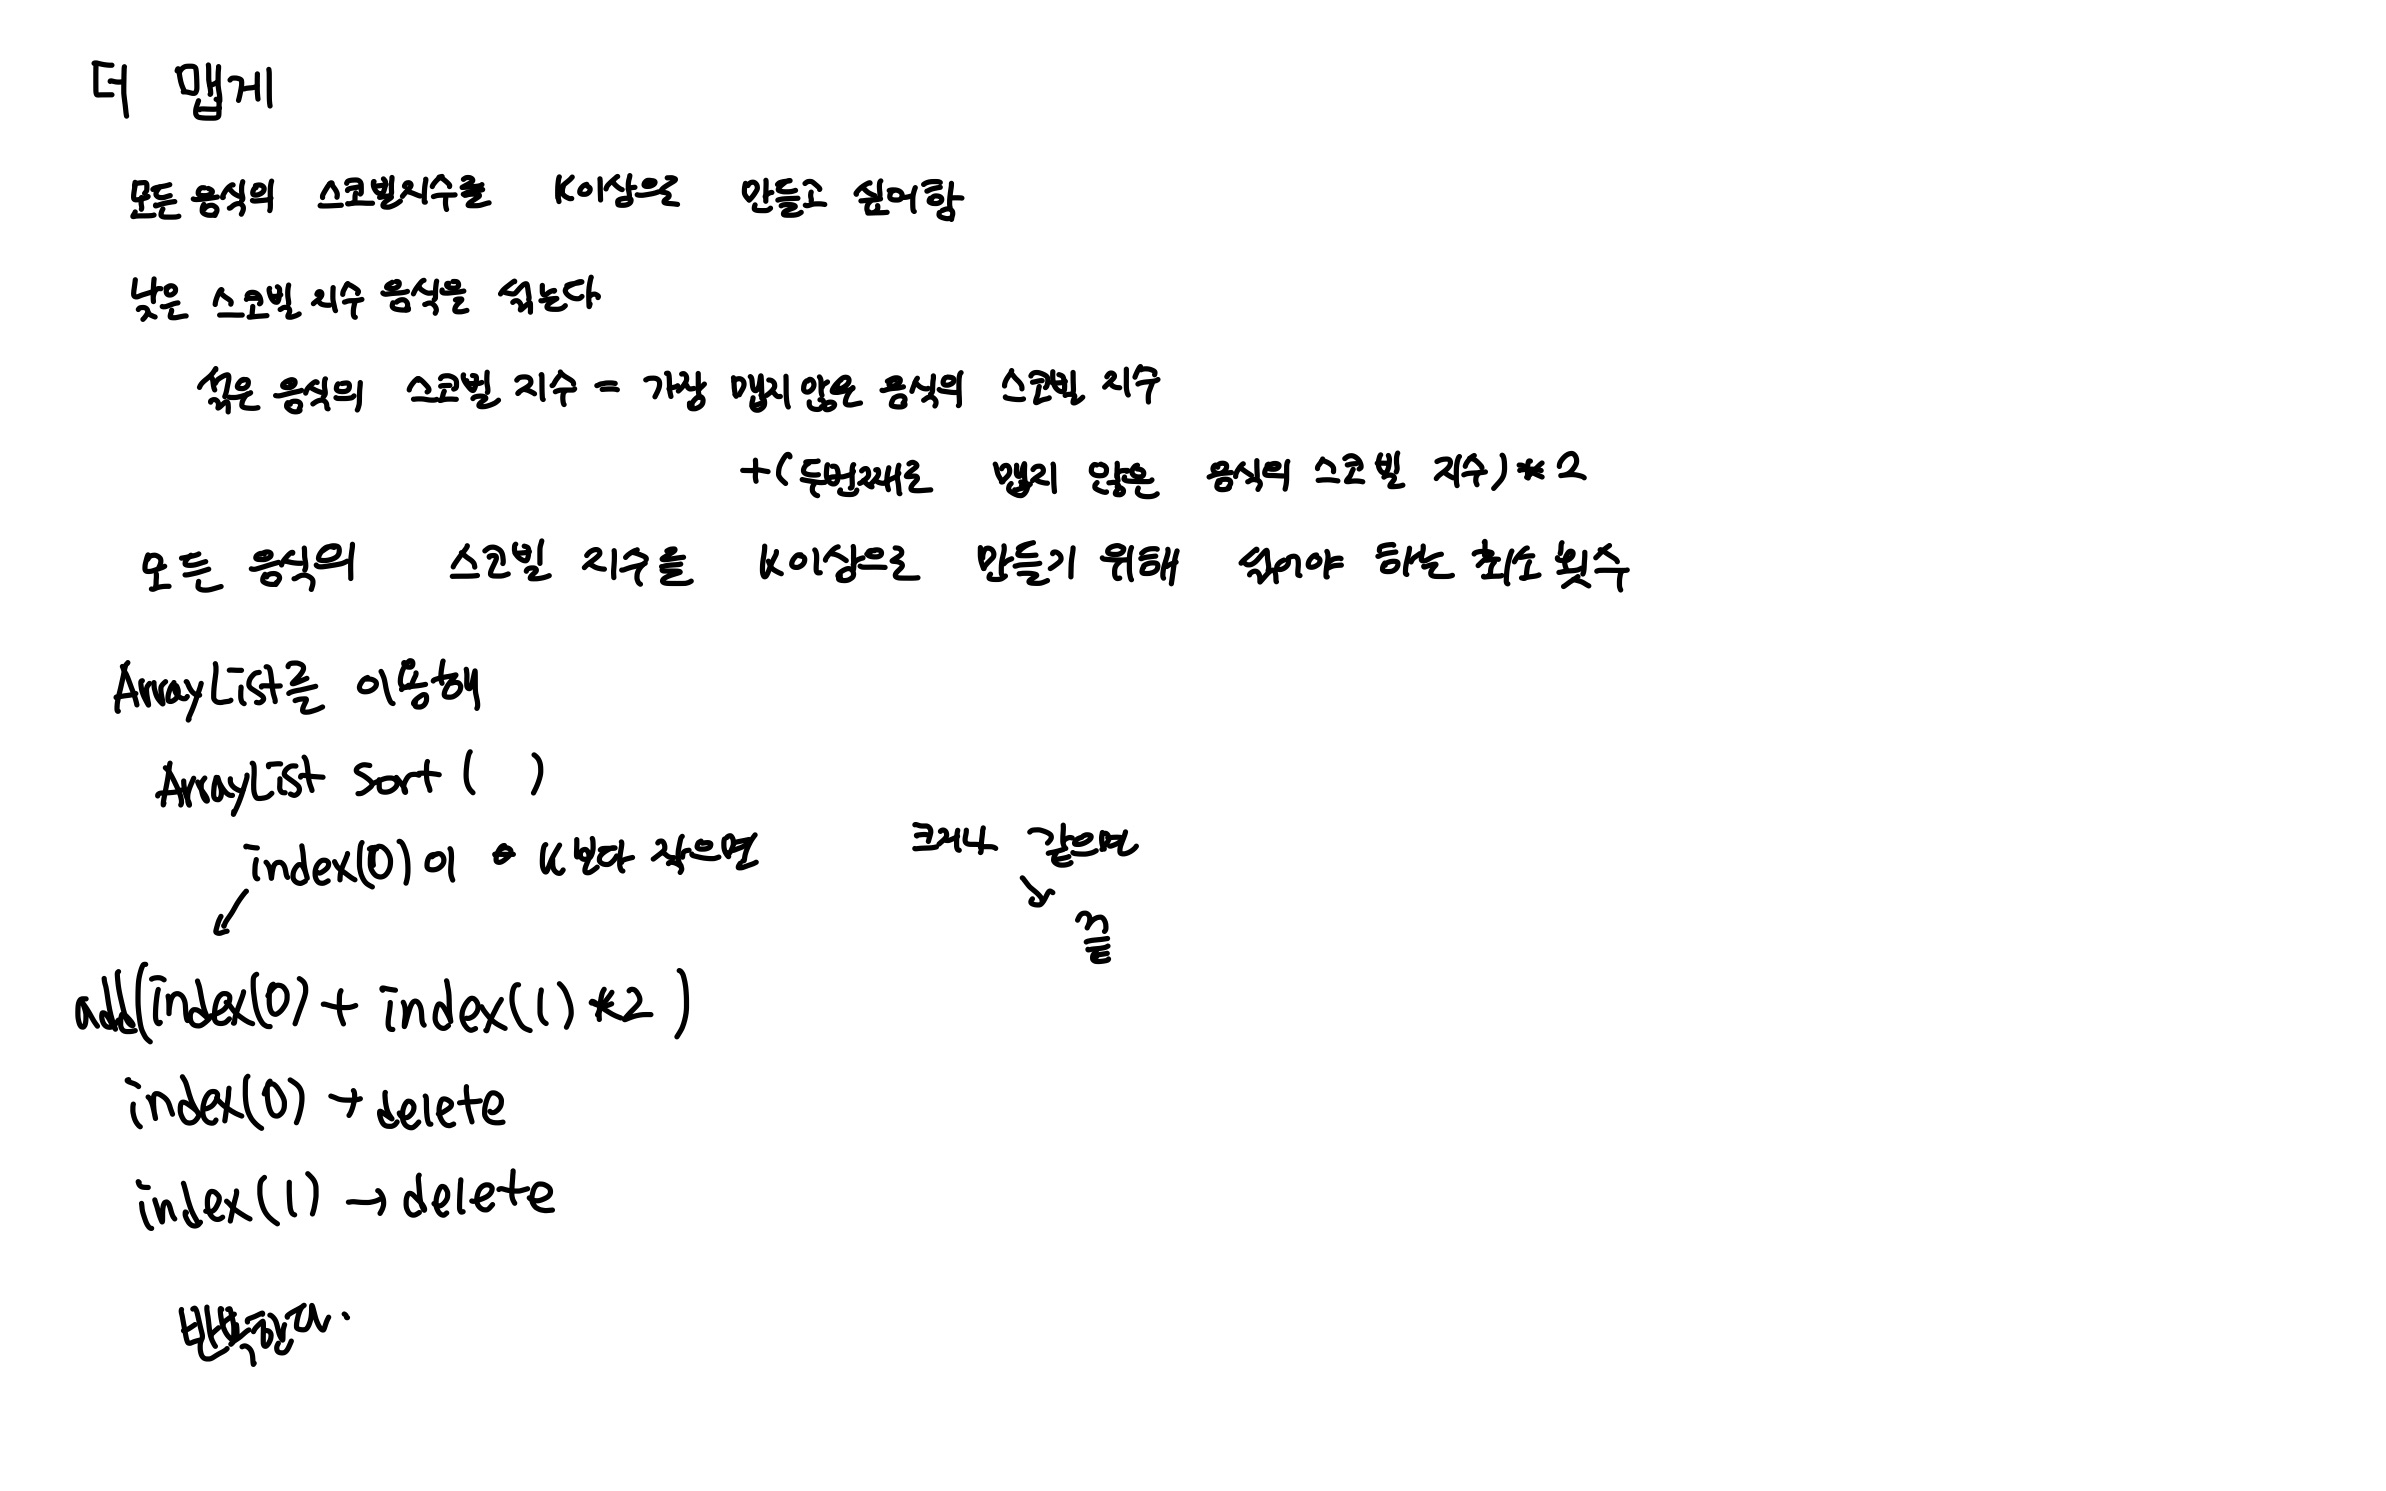 더 맵게
모든 음식의 스코빌지수를 K이상으로 만들고 싶어함
낮은 스코빌 지수 음식을 섞는다
섞은 음식의 스코빌 지수 = 가장 맵지 않은 음식의 스코빌 지수
+(두번째로 맵지 않은 음식의 스코빌 지수)*2
모든 음식의 스코빌 지수를 K이상으로 만들기 위해 섞어야 하는 최소 횟수
ArrayList를 이용해
ArrayList sort ( )
index(0)이 K보다 작으면 크거나 같으면
끝
add(index(0) + index(1)*2)
index(0) → delete
index(1) → delete